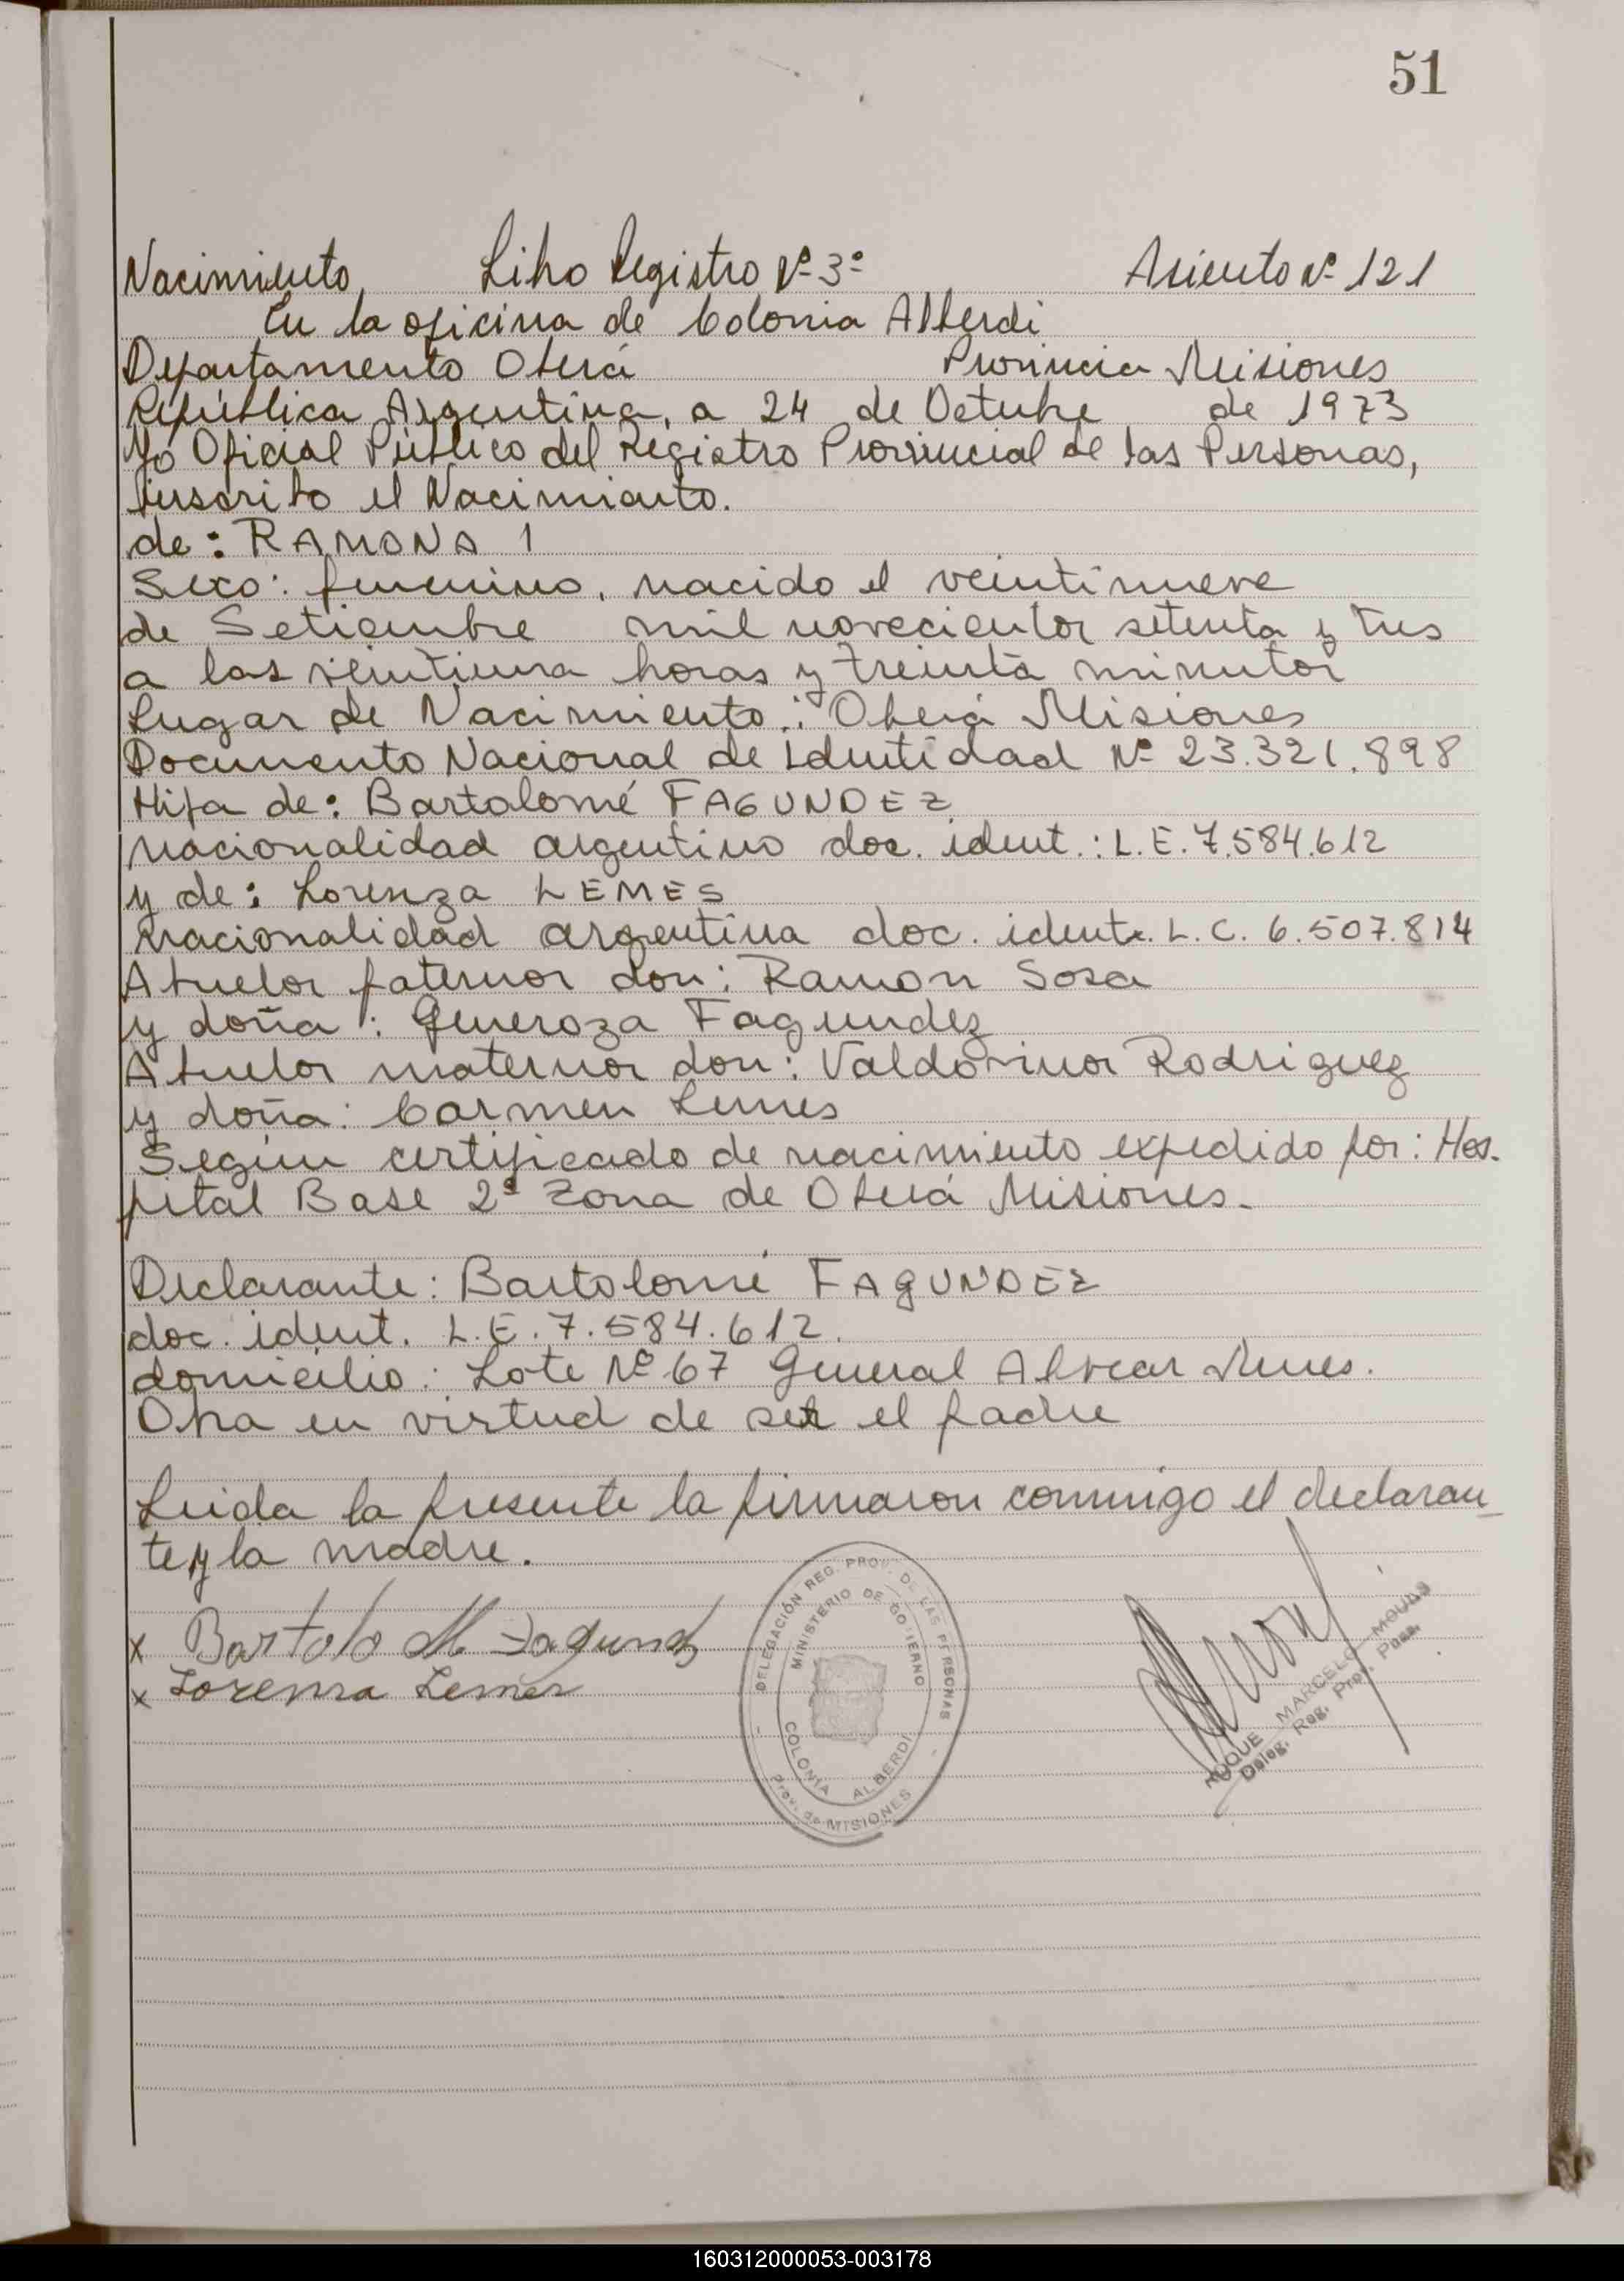 51
Nacimiento Libro Registro Nº 3º Asiento Nº 121
En la oficina de Colonia Alberdi
Departamento Oberá Provincia Misiones
República Argentina, a 24 de Octubre de 1973
Yo Oficial Público del Registro Provincial de las Personas,
Inscribo el Nacimiento.
de: RAMONA 1
Sexo: femenino, nacido el veintinueve
de Setiembre mil novecientos setenta y tres
a las veintiuna horas y treinta minutos
Lugar de Nacimiento: Oberá Misiones
Documento Nacional de Identidad Nº 23.321.898
Hija de: Bartolomé FAGUNDEZ
nacionalidad argentino doc. ident.: L.E. 7.584.612
y de: Lorenza LEMES
nacionalidad argentina doc. ident. L.C. 6.507.814
Abuelos paternos don: Ramon Sosa
y doña: Generoza Fagundez
Abuelos maternos don: Valdovinos Rodriguez
y doña: Carmen Lemes
Según certificado de nacimiento expedido por: Hos-
pital Base 2ª Zona de Oberá Misiones.
Declarante: Bartolomé FAGUNDEZ
doc. ident. L.E. 7.584.612.
domicilio: Lote Nº 67 General Alvear Mnes.
Obra en virtud de ser el padre
Leida la presente la firmaron conmigo el declaran-
te y la madre.
x Bartolo M Fagundz
x Lorenza Lemes
DELEGACIÓN REG. PROV. DE LAS PERSONAS
MINISTERIO DE GOBIERNO
COLONIA ALBERDI
Prov. de MISIONES
ROQUE MARCELO MOURA
Deleg. Reg. Prov. Pers.
160312000053-003178